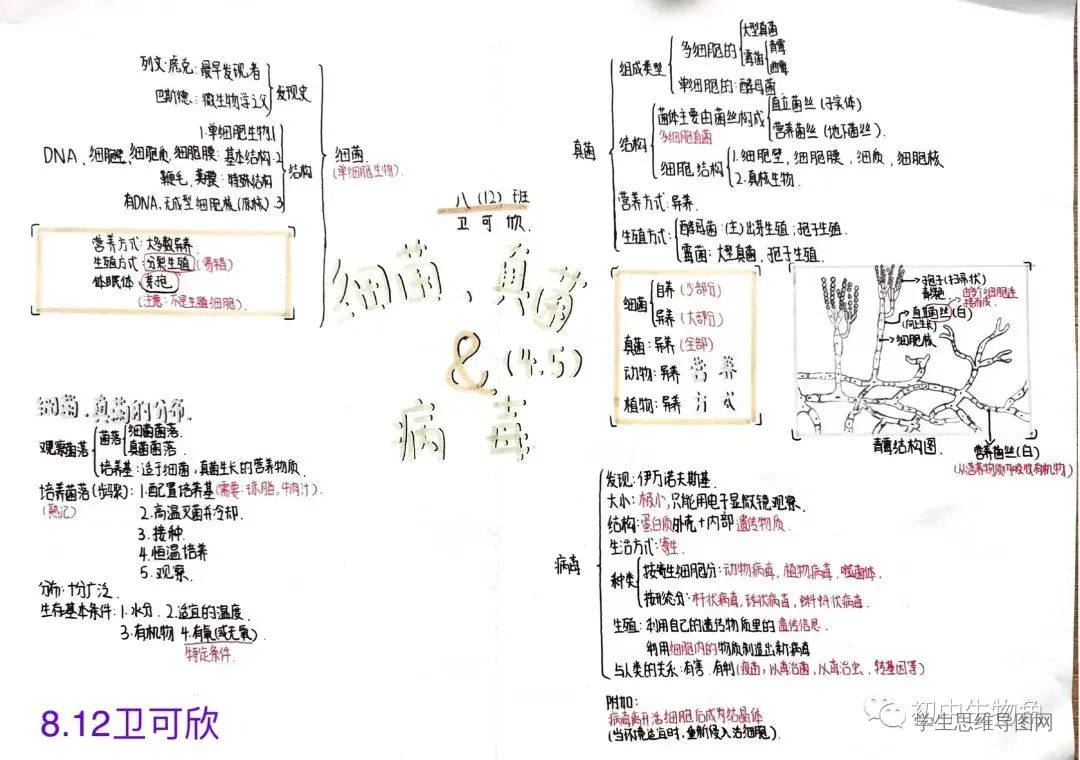 列文·虎克:最早发现者
巴斯德:微生物学之父
发现史
1.单细胞生物
DNA、细胞壁、细胞质、细胞膜:基本结构.2
鞭毛,荚膜:特殊结构
有DNA,无成型细胞核(原核) 3
结构
细菌.
(单细胞生物).
营养方式:大多数异养.
生殖方式:分裂生殖(易错)
休眠体:芽孢
(注意:不是生殖细胞).
八(12)班
卫可欣.
细菌、真菌
&(4.5)
病毒
真菌
组成类型
多细胞的
大型真菌
霉菌
青霉
曲霉
单细胞的:酵母菌
结构
菌体主要由菌丝构成
多细胞真菌
直立菌丝(子实体)
营养菌丝(地下菌丝).
细胞结构
1.细胞壁,细胞膜,细质,细胞核
2.真核生物.
营养方式:异养.
生殖方式:
酵母菌:(主)出芽生殖;孢子生殖.
霉菌:大型真菌,孢子生殖.
细菌
自养(少部分)
异养(大部分)
真菌:异养(全部)
动物:异养
植物:异养
营养
方式
孢子(扫帚状)
直立菌丝(白)
(向上生长)
细胞核
青霉结构图.
营养菌丝(白)
(从营养物质内吸收有机物)
细菌、真菌的分布.
观察菌落
菌落
细菌菌落.
真菌菌落.
培养基:适于细菌,真菌生长的营养物质.
培养菌落(步骤):1.配置培养基(需要:琼脂,牛肉汁)
(熟记)
2.高温灭菌并冷却.
3.接种.
4.恒温培养
5.观察.
分布:十分广泛.
生存基本条件:1.水分.2.适宜的温度.
3.有机物 4.有氧(或无氧)
特定条件.
病毒
发现:伊万诺夫斯基.
大小:极小,只能用电子显微镜观察.
结构:蛋白质外壳+内部遗传物质.
生活方式:寄生.
种类
按寄生细胞分:动物病毒,植物病毒.噬菌体.
按形态分:杆状病毒,球状病毒,蝌蚪状病毒.
生殖:利用自己的遗传物质里的遗传信息.
利用细胞内的物质制造出新病毒
与人类的关系:有害.有利(疫苗,以毒治菌,以毒治虫,转基因等)
附加:
病毒离开活细胞后成为结晶体
(当环境适宜时,重新侵入活细胞).
8.12卫可欣
初中生物兔
学生思维导图网